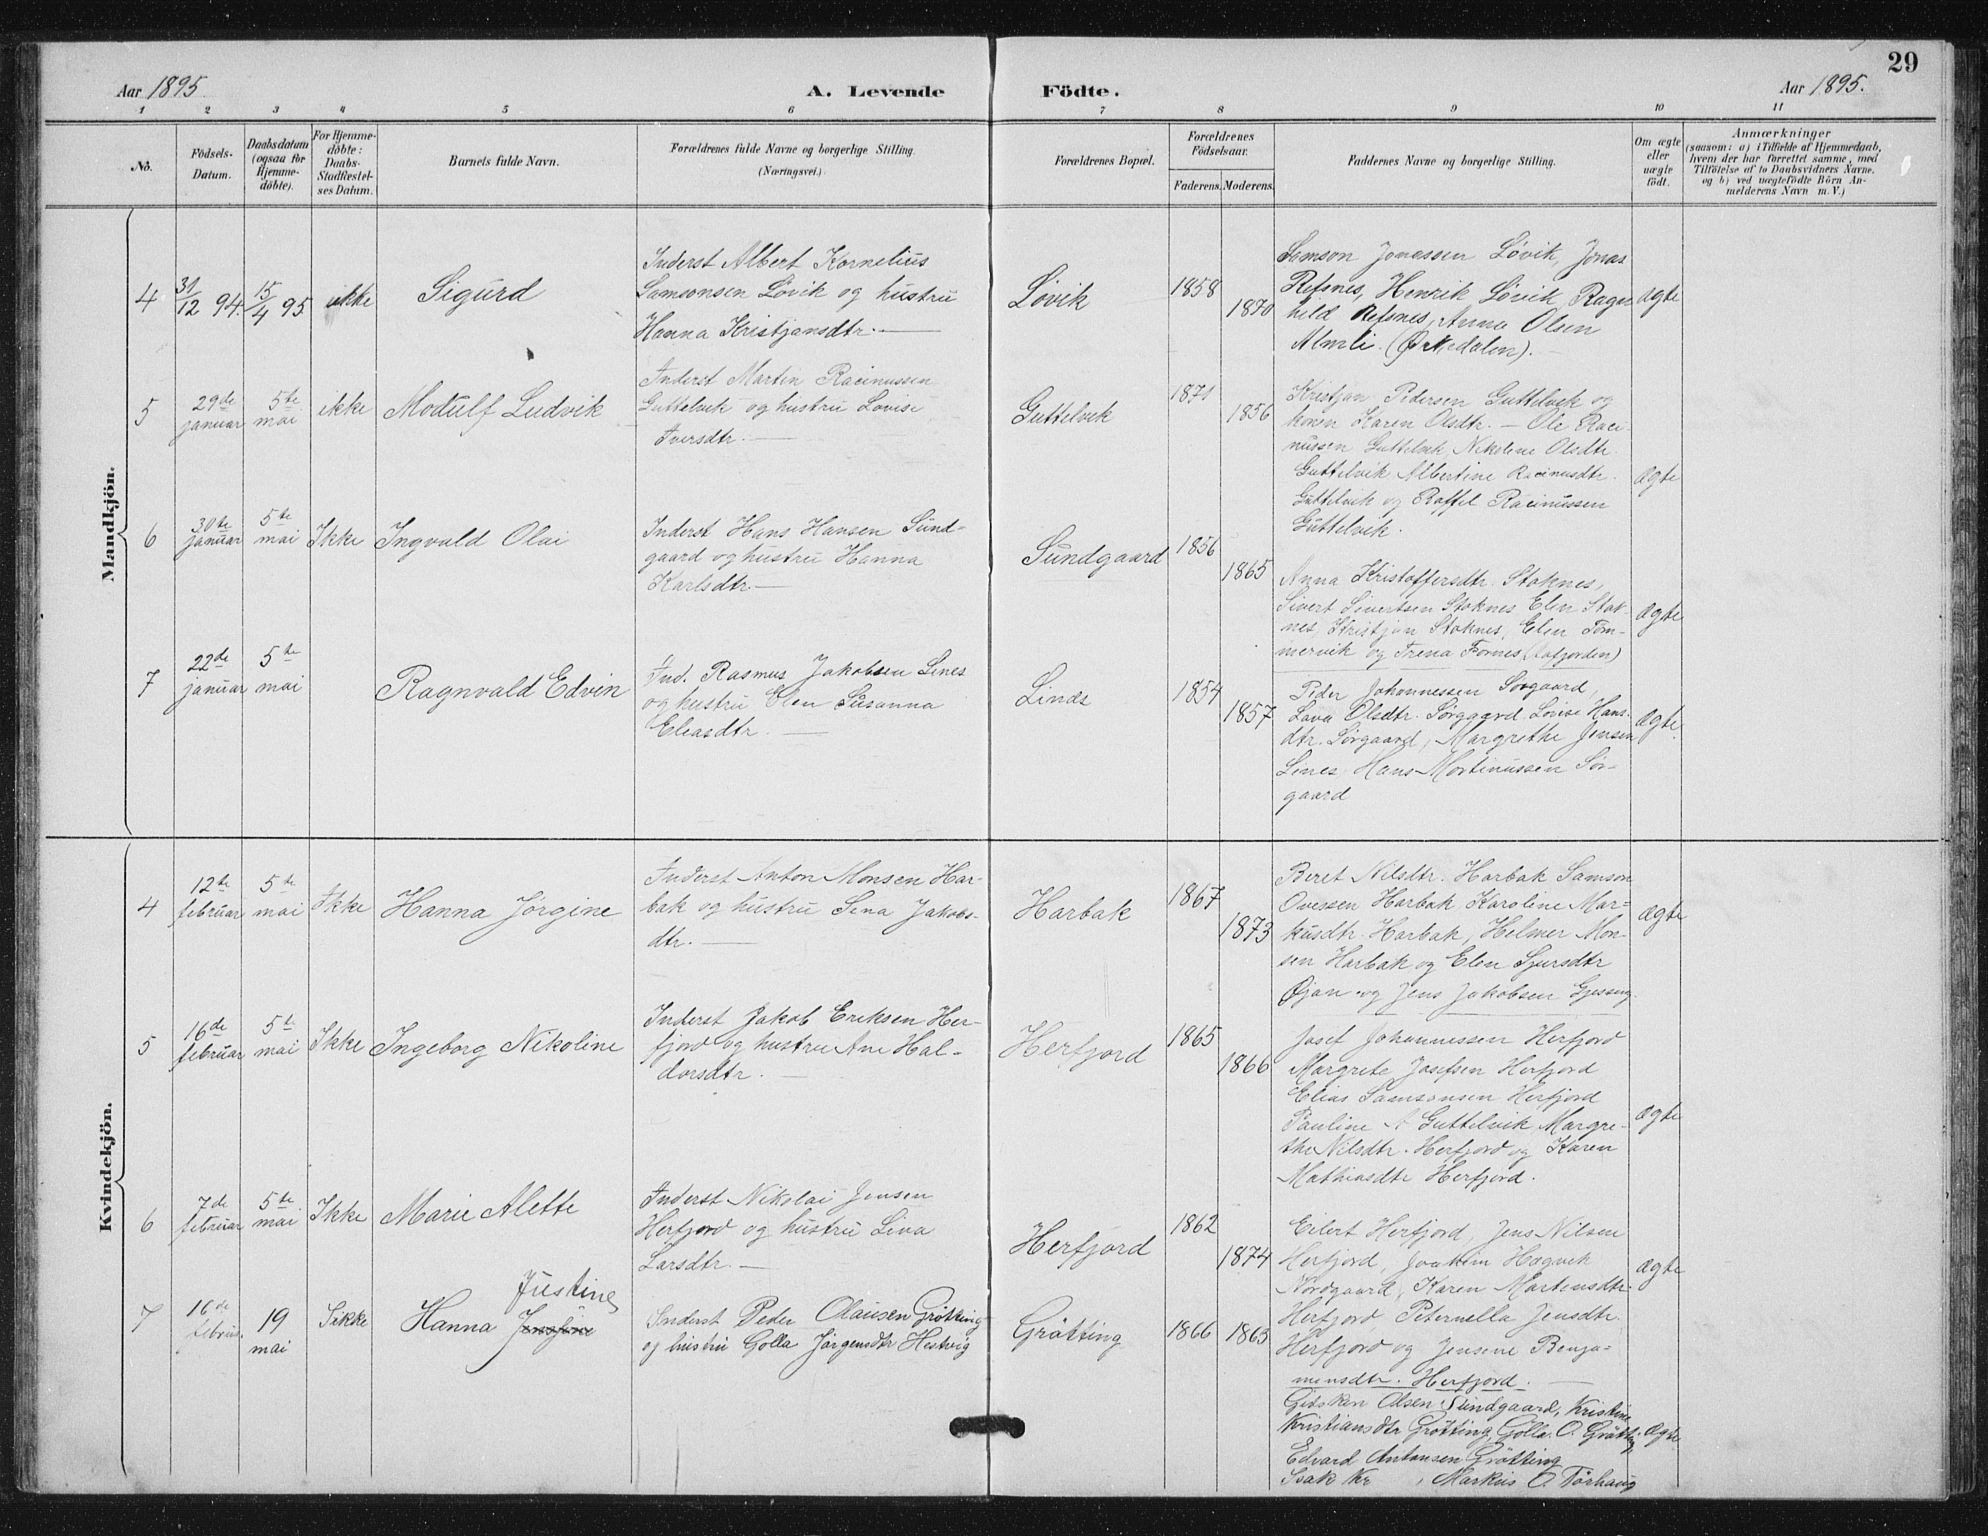 29
Aar 1895.
A. Levende Födte.
Aar 1895.
1 2 3 4 5 6 7 8 9 10 11
No.
Födsels-
Datum.
Daabsdatum
(ogsaa for
Hjemme-
döbte).
For Hjemme-
döbte:
Daabs-
Stadfestel-
ses Datum.
Barnets fulde Navn.
Forældrenes fulde Navne og borgerlige Stilling.
(Næringsvei.)
Forældrenes Bopæl.
Forældrenes
Födselsaar.
Faderens. Moderens.
Faddernes Navne og borgerlige Stilling.
Om ægte
eller
uægte
födt.
Anmærkninger
(saasom: a) i Tilfælde af Hjemmedaab,
hvem der har forrettet samme, med
Tilföielse af to Daabsvidners Navne.
og b) ved uægtefödte Börn An-
melderens Navn m. V.)
Mandkjön.
4
31/12 94.
15/4 95
ikke
Sigurd
Inderst Albert Kornelius
Samsonsen Løvik og hustru
Hanna Kristjansdtr. —
Løvik
1858
1870
Samson Jonessen Løvik, Jonas
Refsnes, Henrik Løvik, Ragn
hild Refsnes, Anna Olsen
Almli. (Ørkedalen). —
ægte
5
29de
januar
5te
mai
ikke
Modulf Ludvik
Inderst Martin Racinussen
Guttelvik og hustru Lovise
Iversdtr. —
Guttelvik
1871
1856
Kristjan Pedersen Guttelvik og
kona Karen Olsdtr. — Ole Raci
nussen Guttelvik, Nikoline Olsdtr
Guttelvik Albertine Racinusdtr.
Guttelvik og Raffel Racinussen
Guttelvik.
ægte
6
30te
januar
5te
mai
Ikke
Ingvald Olai
Inderst Hans Hansen Sund-
gaard og hustru Hanna
Karlsdtr. —
Sundgaard
1856
1865
Anna Kristoffersdtr. Stoknes,
Sivert Sivertsen Stoknes Elen Stok-
nes, Kristjan Stoknes, Elen Tøm-
mervik og Trena Fornes (Aafjorden)
ægte
7
22de
januar
5te
mai
Ragnvald Edvin
Ind. Rasmus Jakobsen Lines
og hustru Elen Susanna
Eleasdtr. —
Lines
1854
1857
Peder Johannessen Sørgaard,
Lava Olsdtr. Sørgaard. Lovise Hans-
dtr. Sørgaard, Margrethe Jensen
Lines, Hans Mortinussen Sør-
gaard
ægte.
Kvindekjön.
4
12te
februar
5te
mai
Ikke
Hanna Jörgine
Inderst Anton Monsen Har-
bak og hustru Sena Jakobs-
dtr. —
Harbak
1867
1873
Beret Nilsdtr. Harbak Samson
Ovessen Harbak, Karoline Mar-
kusdtr. Harbak, Helmer Mon-
sen Harbak og Elen Sjursdtr
Øjan og Jens Jakobsen Gjessing.
ægte
5
16de
februar
5te
mai
Ikke
Ingeborg Nikoline
Inderst Jakob Eriksen Her-
fjord og hustru Ane Hal-
dorsdtr. —
Herfjord
1865
1866
Josef Johannessen Herfjord
Margrete Josefsen Herfjord
Elias Samsonsen Herfjord
Pauline A Guttelvik Margre-
the Nilsdtr. Herfjord og Karen
Mathiasdtr Herfjord.
ægte
6
7de
februar
5te
mai
Ikke
Marie Alette
Inderst Nikolai Jensen
Herfjord og hustru Liva
Larsdtr. —
Herfjord
1862
1874
Eilert Herfjord, Jens Nilsen
Herfjord, Joakim Hægvik
Nordgaard, Karen Martensdtr.
Herfjord Peternella Jensdtr.
Herfjord og Jensene Benja-
minsdtr. Herfjord. —
ægte
7
16de
februar.
19
mai
Ikke
Hanna Justine
Inderst Peder Olausen Grötting
og hustru Golla Jörgensdtr Hestvig
Grötting
1866
1865
Gidsken Olsen Sundgaard, Kristine
Kristiansdtr Grötting, Golla O. Grötting,
Edvard Antonsen Grötting
Isak Kr , Markus O. Törhaug
ægte